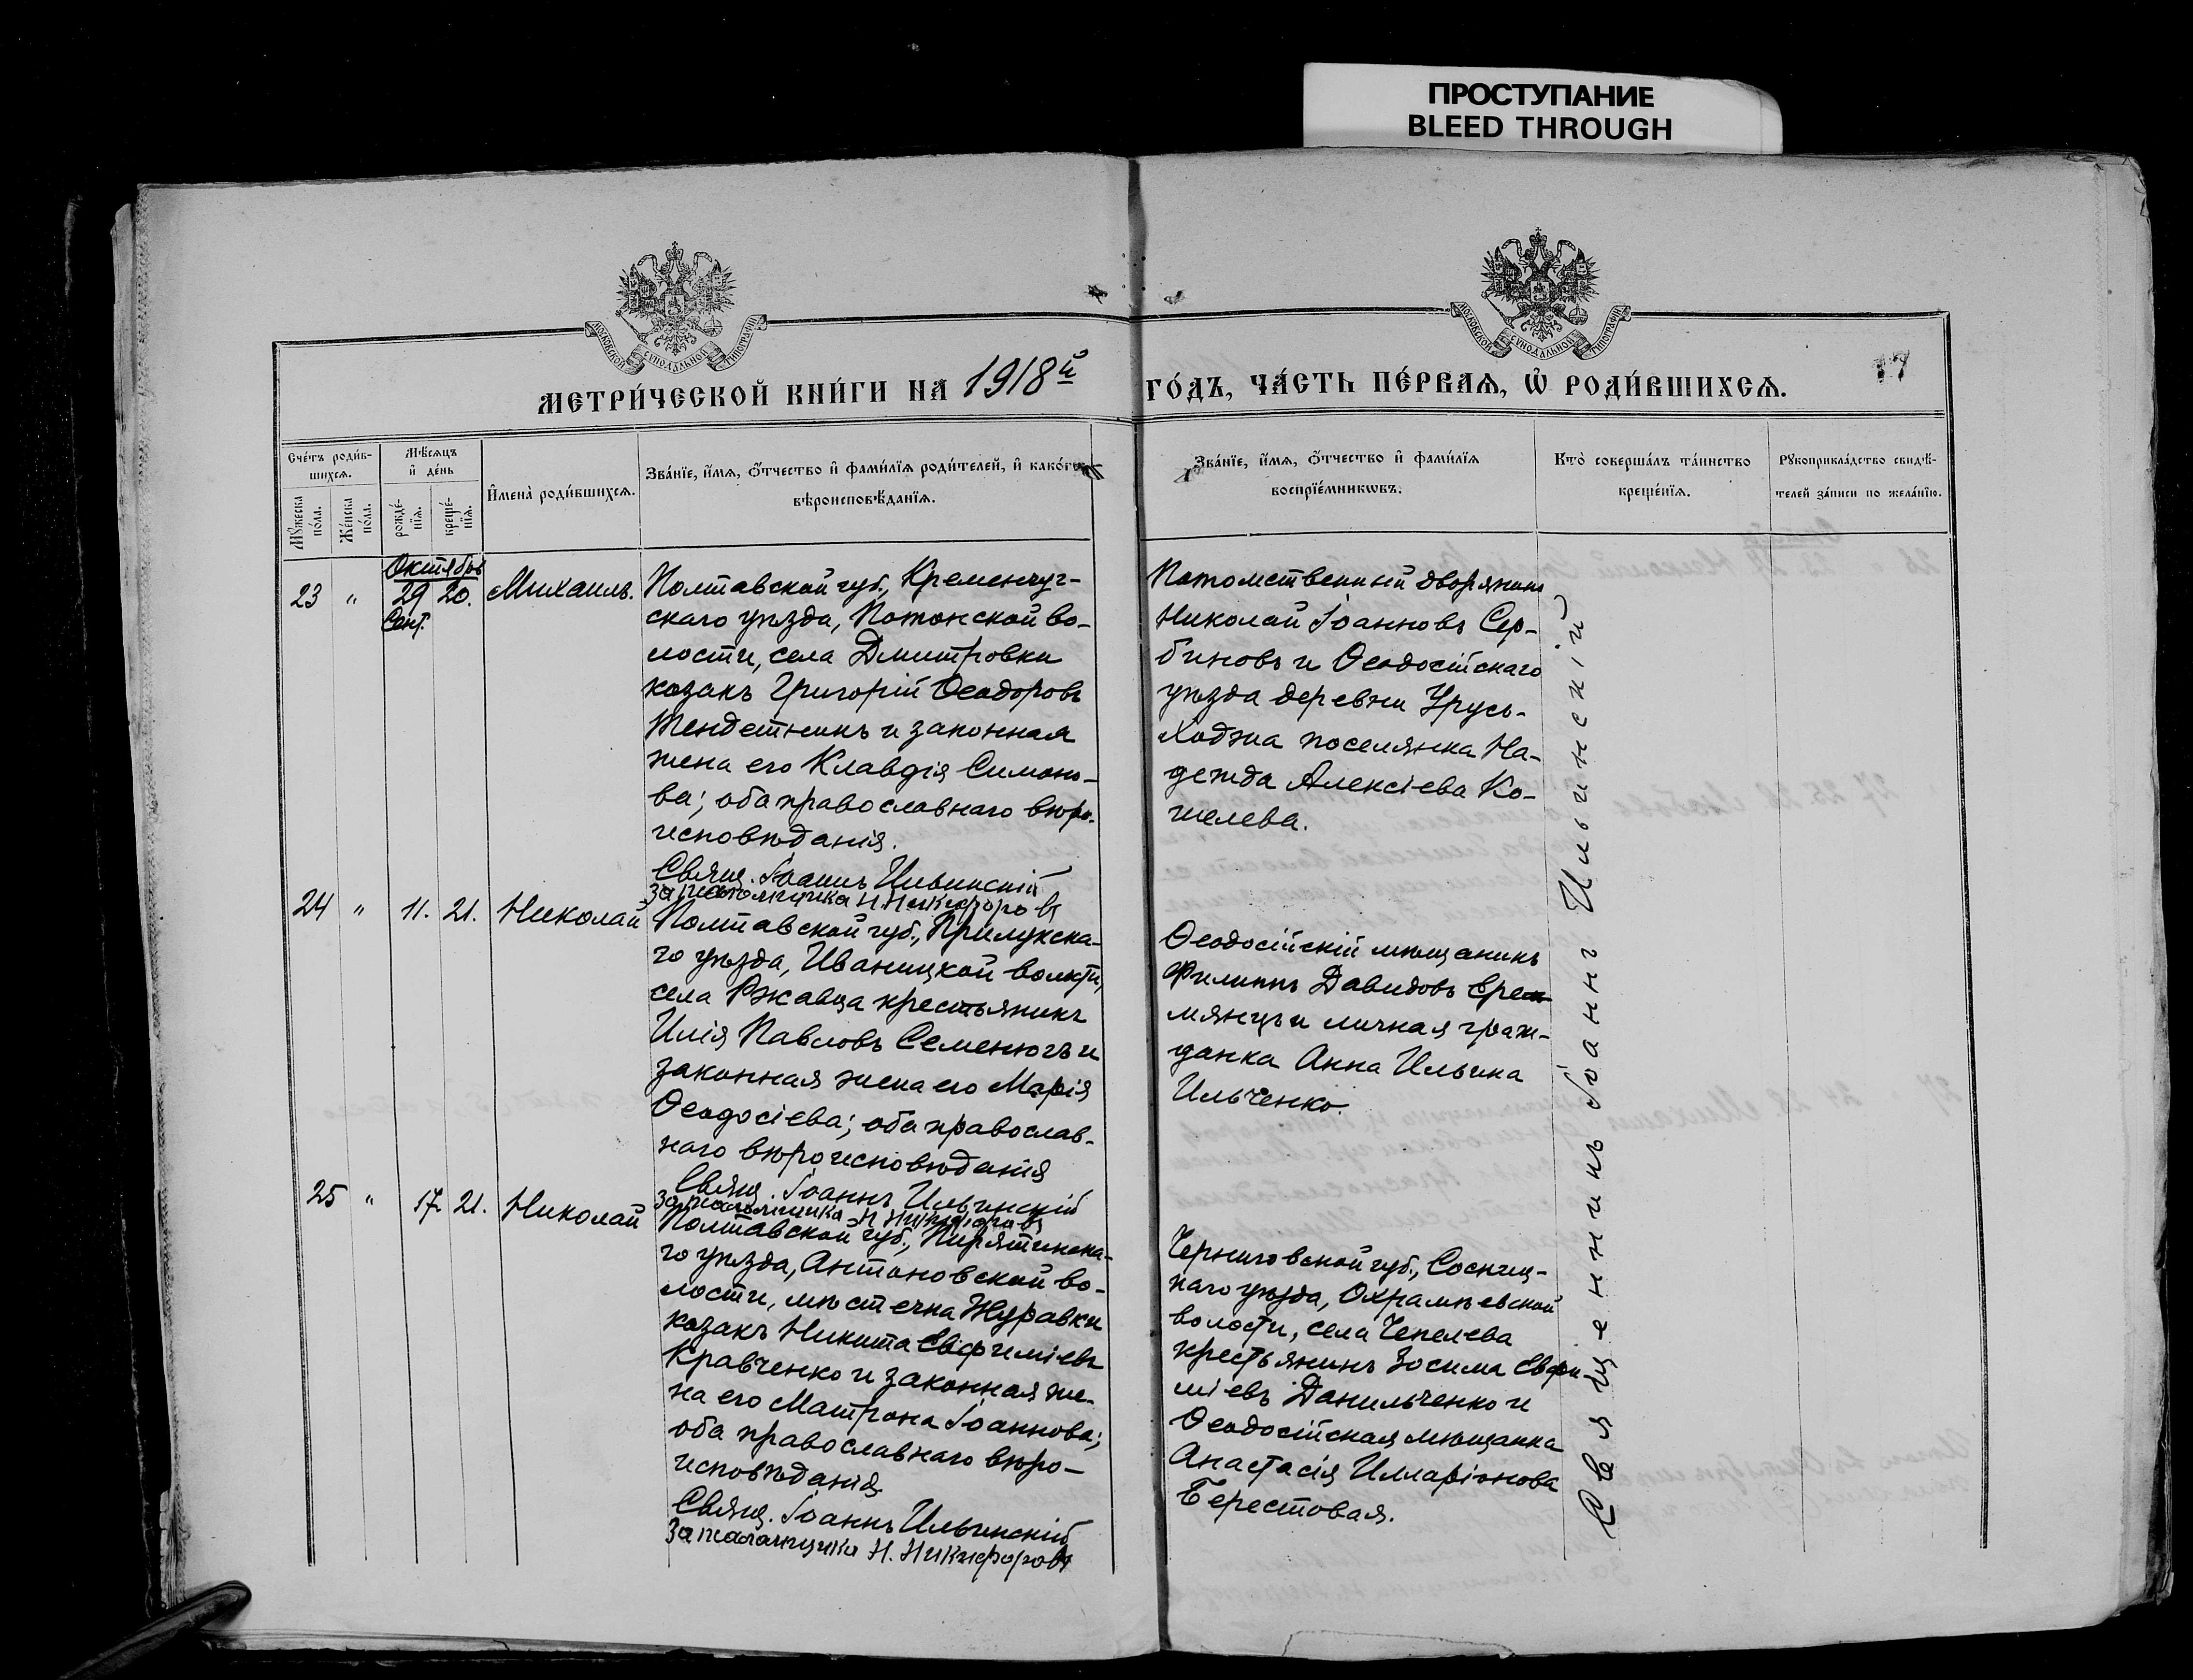 ПРОСТУПАНИЕ
BLEED THROUGH
МОСКОВСКОЙ СѴНОДАЛЬНОЙ ТИПОГРАФІИ
МОСКОВСКОЙ СѴНОДАЛЬНОЙ ТИПОГРАФІИ
17
МЕТРИ́ЧЕСКОЙ КНИ́ГИ НА 1918й ГО́ДЪ, ЧА́СТЬ ПЕ́РВАѦ, Ѡ҆ РОДИ́ВШИХСѦ.
Сче́тъ роди́в-
шихсѧ.
Мꙋ́жеска по́ла.
Же́нска по́ла.
Мѣ́сѧцъ и҆ де́нь
рожде́-
нїѧ.
креще́-
нїѧ.
И҆мена̀ роди́вшихсѧ.
Зва́нїе, и҆́мѧ, ѻ҆́тчество и҆ фами́лїѧ роди́телей, и҆ како́гѡ
вѣроисповѣ́данїѧ.
Зва́нїе, и҆́мѧ, ѻ҆́тчество и҆ фами́лїѧ
воспрїе́мникѡвъ.
Кто̀ соверша́лъ та́инство
креще́нїѧ.
Рꙋкоприкла́дство свидѣ́-
телей за́писи по жела́нїю.
Октябрь
23 " 29 20. Михаилъ.
Сент.
Полтавской губ., Кременчуг-
скаго уѣзда, Потокской во-
лости, села Дмитровки
козакъ Григорій Ѳеодоровъ
Тендетникъ и законная
жена его Клавдія Симоно-
ва; оба православнаго вѣро-
исповѣданія.
Свящ. Іоаннъ Ильинскій
За псаломщика Н. Никифоровъ
Потомственный дворянинъ
Николай Іоанновъ Сер-
биновъ и Ѳеодосійскаго
уѣзда деревни Урусъ-
Ходжа поселянка На-
дежда Алексіева Ко-
шелева.
24 " 11. 21. Николай
Полтавской губ., Прилукска-
го уѣзда, Иваницкой волости,
села Ржавца крестьянинъ
Илія Павловъ Семенюгъ и
законная жена его Марія
Ѳеодосіева; оба православ-
наго вѣроисповѣданія
Свящ. Іоаннъ Ильинскій
За псаломщика Н. Никифоровъ
Ѳеодосійскій мѣщанинъ
Филиппъ Давидовъ Ере-
мянцъ и личная граж-
данка Анна Ильина
Ильченко.
25 " 17. 21. Николай
Полтавской губ., Пирятинска-
го уѣзда, Антоновской во-
лости, мѣстечка Журавки
козакъ Никита Евфиміевъ
Кравченко и законная же-
на его Матрона Іоаннова;
оба православнаго вѣро-
исповѣданія.
Свящ. Іоаннъ Ильинскій
За псаломщика Н. Никифоровъ
Черниговской губ., Сосниц-
каго уѣзда, Охрамѣевской
волости, села Чепелева
крестьянинъ Зосима Евфи-
міевъ Данильченко и
Ѳеодосійская мѣщанка
Анастасія Илларіонова
Берестовая.
Священникъ Іоаннъ Ильинскій